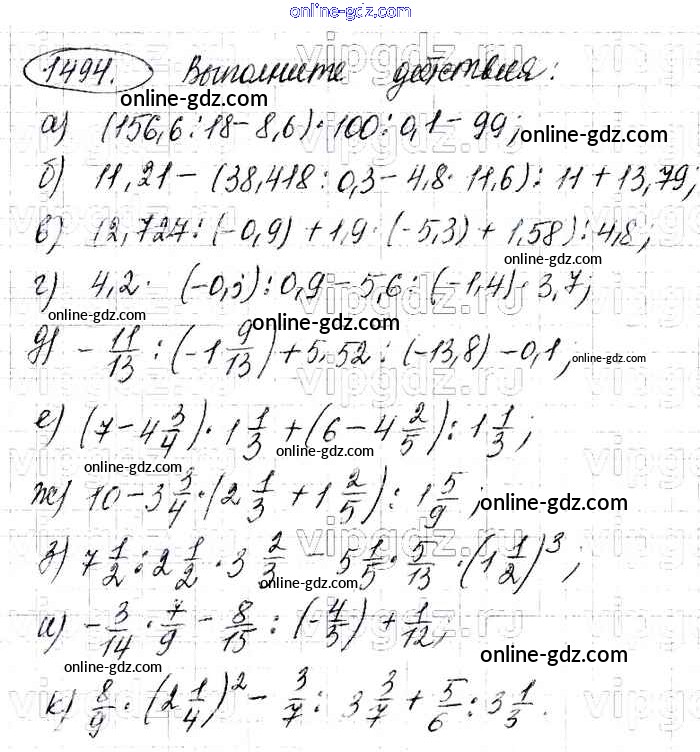 online-gdz.com
1494. Выполните действия:
online-gdz.com
а) (156,6 : 18 - 8,6) · 100 : 0,1 - 99; online-gdz.com
б) 11,21 - (38,418 : 0,3 - 4,8 · 11,6) : 11 + 13,79;
online-gdz.com
в) 12,727 : (-0,9) + 1,9 · (-5,3) + 1,58) : 4,8;
online-gdz.com
г) 4,2 · (-0,3) : 0,9 - 5,6 : (-1,4) · 3,7;
online-gdz.com
online-gdz.com
д) - 11/13 : (-1 9/13) + 5,52 : (-13,8) - 0,1; online-gdz.com
е) (7 - 4 3/4) · 1 1/3 + (6 - 4 2/5) : 1 1/3;
online-gdz.com online-gdz.com
ж) 10 - 3 3/4 · (2 1/3 + 1 2/5) : 1 5/9; online-gdz.com
з) 7 1/2 : 2 1/2 · 3 2/3 - 5 1/5 · 5/13 · (1 1/2)³;
online-gdz.com
и) - 3/14 · 7/9 - 8/15 : (- 4/5) + 1/12;
online-gdz.com
online-gdz.com
к) 8/9 · (2 1/4)² - 3/7 : 3 3/7 + 5/6 : 3 1/3.
online-gdz.com